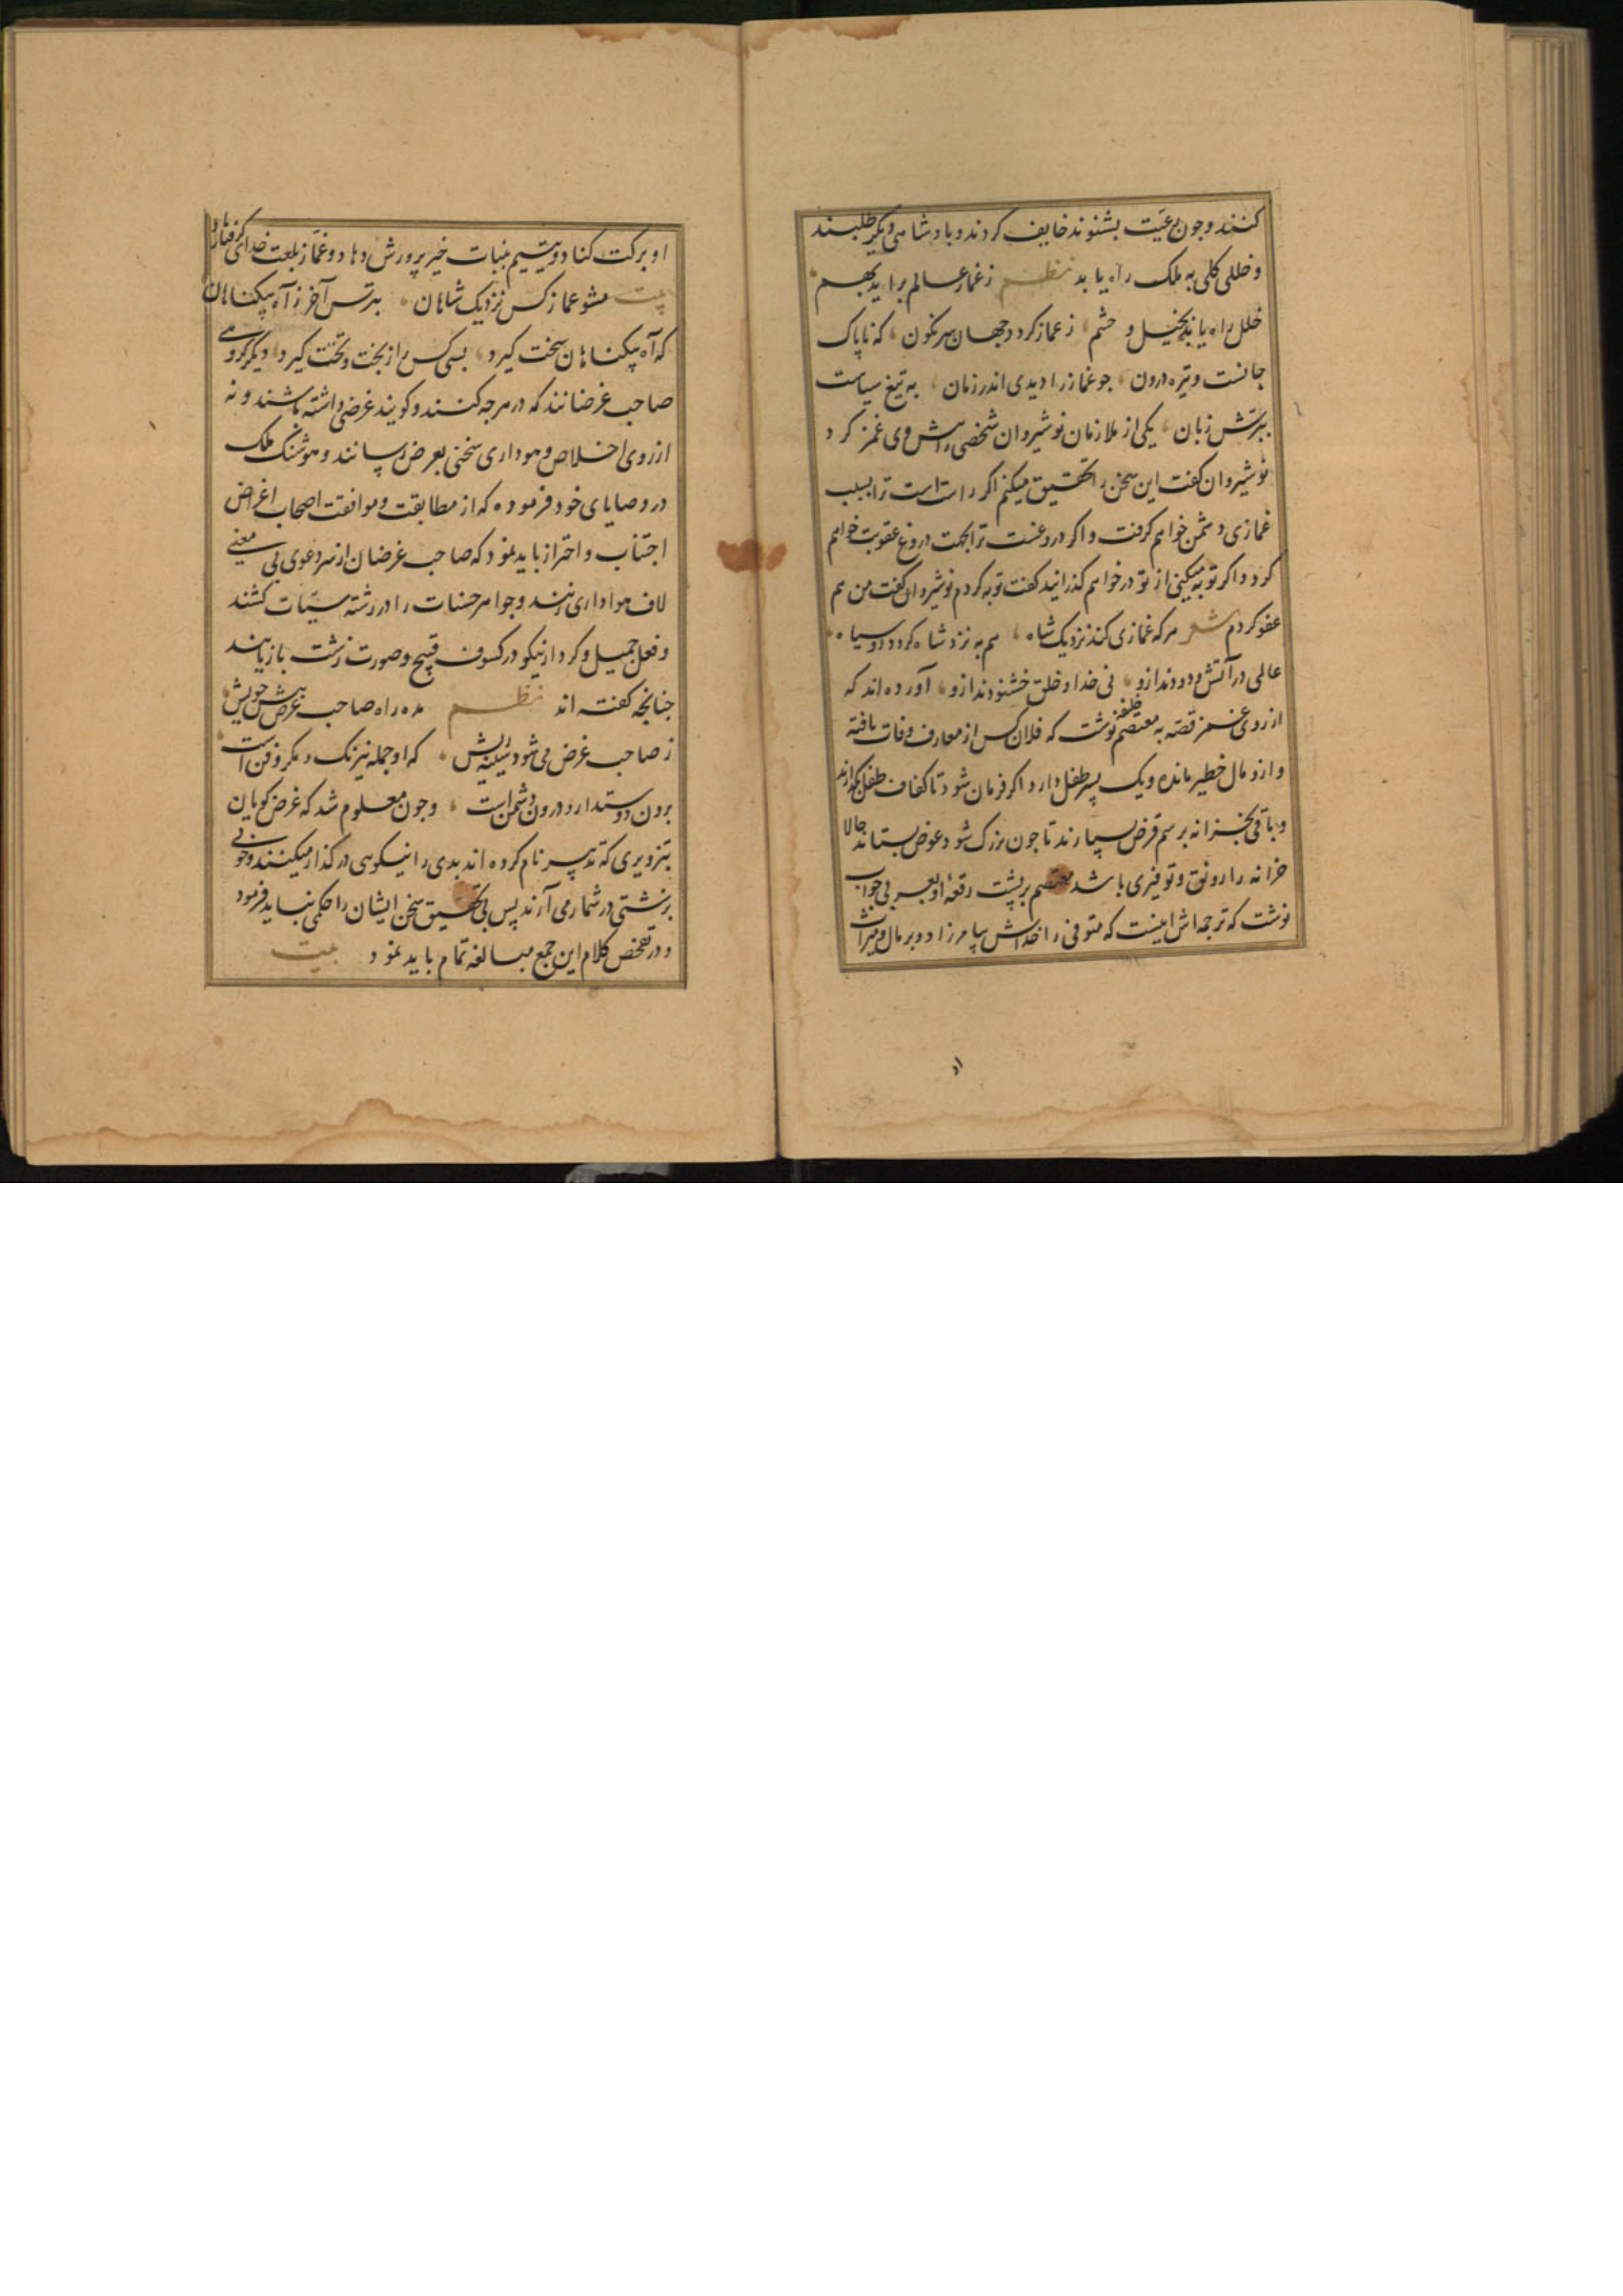 کنند و جون رعیّت بشنوند خایف کردند و بادشاهی دیکر طلبند
و خللی کلی به ملک راه یابد نظم ز غماز عالم براید بهم
خلل راه یابد بخیل و حشم ز غماز کردد جهان سرنکون که ناپاک
جانست و تیره درون جو غماز را دیدی اندر زمان به تیغ سیاست
ببرّش زبان یکی از ملازمان نوشیروان شخصی را پیش وی غمز کرد
نوشیروان کفت این سخن را تحقیق میکنم اکر راست است ترا بسبب
غمازی دشمن خواهم کرفت و اکر دروغست ترا بجهت دروغ عقوبت خواهم
کرد و اکر توبه میکنی از تو در خواهم کذرانید کفت توبه کردم نوشیروان کفت من هم
عفو کردم شعر هرکه غمازی کند نزدیک شاه هم به نزد شاه کردد رو سیاه
عالمی در آتش و دودند ازو نی خدا و خلق خشنودند ازو آورده اند که
از روی غمز قصّه به معتصم خلیفه نوشت که فلان کس از معارف وفات یافته
و ازو مال خطیر مانده و یک پسر طفل دارد اکر فرمان شود تا کفاف طفل بکذارند
و باقی بخزانه برسم قرض سپارند تا جون بزرک شود عوض بستاند حالا
خزانه را رونق و توفیری باشد معتصم بر پشت رقعۀ او بعربی جواب
نوشت که ترجمه اش اینست که متوفی را خداش بیامرزاد و بر مال و میراث
او برکت کناد و یتیم بنبات خیر پرورش دهاد و غمّاز بلعنت خدای کرفتار باد
بیت مشو غماز کس نزدیک شاهان بترس آخر ز آه بیکناهان
که آه بیکناهان سخت کیرد بسی کس را ز بخت و تخت کیرد دیکر کروهی
صاحب غرضانند که در هرجه کنند و کویند غرضی داشته باشند و نه
از روی اخلاص و هوداری سخنی بعرض رسانند و هوشنک ملک
در وصایای خود فرموده که از مطابقت و موافقت اصحاب اغراض
اجتناب و احتراز باید نمود که صاحب غرضان از سر دعوی بی معنی
لاف هواداری زنند و جواهر حسنات را در رشته سیّئات کشند
و فعل جمیل و کردار نیکو در کسوف قبیح و صورت زشت باز یابند
جنانجه کفته اند نظم مده راه صاحب غرض پیش خویش
ز صاحب غرض می شود سینه ریش که او جمله نیرنک و مکر و فن است
برون دوستدار و درون دشمن است و جون معلوم شد که غرض کویان
بتزویری که تدبیر نام کرده اند بدی را نیکویی در کذار میکنند و خوبی
بزشتی در شمار می آرند پس بی تحقیق سخن ایشان را حکمی نباید فرمود
و در تفحص کلام این جمع مبالغه تمام باید نمود بیت